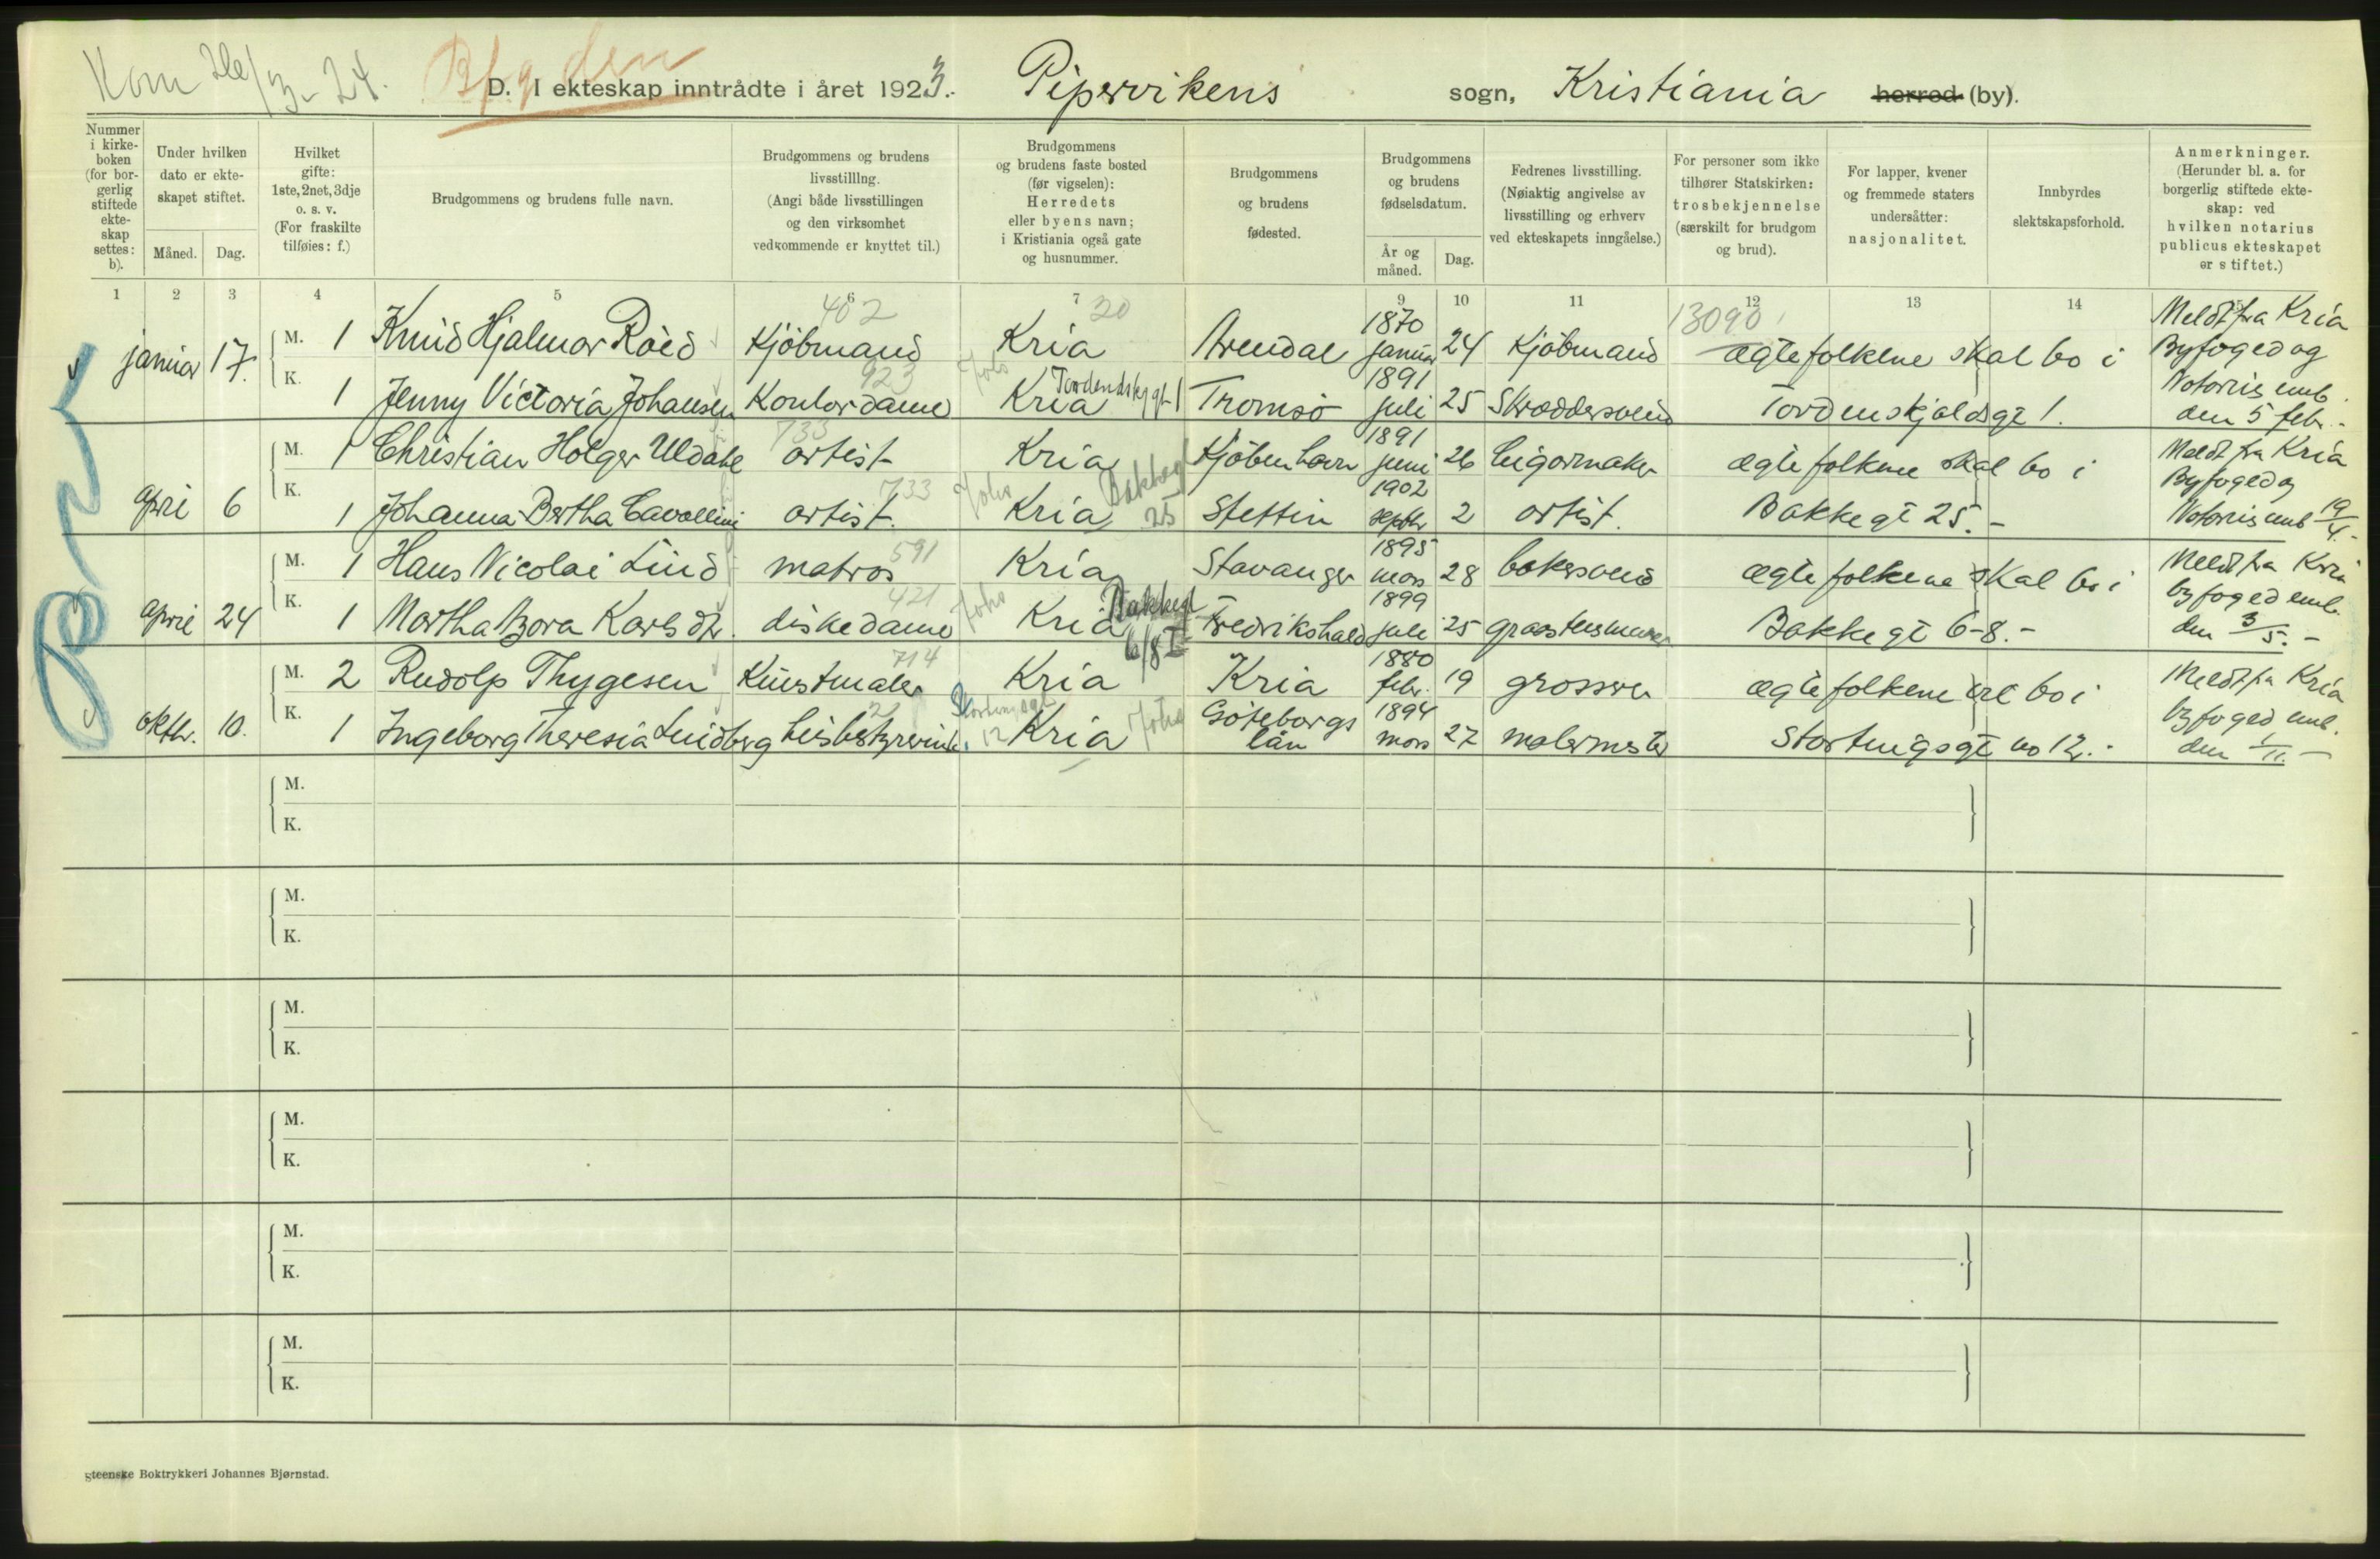 Kom 26/3-24.
Bfgden
D. I ekteskap inntrådte i året 1923. Pipervikens sogn, Kristiania herred (by).
Nummer i kirkeboken (for borgerlig stiftede ekteskap settes: b).
Under hvilken dato er ekteskapet stiftet.
Måned. Dag.
Hvilket gifte: 1ste, 2net, 3dje o. s. v. (For fraskilte tilføies: f.)
Brudgommens og brudens fulle navn.
Brudgommens og brudens livsstilling. (Angi både livsstillingen og den virksomhet vedkommende er knyttet til.)
Brudgommens og brudens faste bosted (før vigselen): Herredets eller byens navn; i Kristiania også gate og husnummer.
Brudgommens og brudens fødested.
Brudgommens og brudens fødselsdatum.
År og måned. Dag.
Fedrenes livsstilling. (Nøiaktig angivelse av livsstilling og erhverv ved ekteskapets inngåelse.)
For personer som ikke tilhører Statskirken: trosbekjennelse (særskilt for brudgom og brud).
For lapper, kvener og fremmede staters undersåtter: nasjonalitet.
Innbyrdes slektskapsforhold.
Anmerkninger. (Herunder bl. a. for borgerlig stiftede ekteskap: ved hvilken notarius publicus ekteskapet er stiftet.)
1 2 3 4 5 6 7 9 10 11 12 13 14
402 20 13090
januar 17. M. 1 Knud Hjalmar Röed Kjöbmand Kria Arendal 1870 januar 24 Kjöbmand ægtefolkene skal bo i Meldt fra Kria Byfoged og
923
K. 1 Jenny Victoria Johansen Kontordame Kria Tordenskj gt 1 Tromsö 1891 juli 25 Skræddersvend Tordenskjoldsgt 1. Notarius emb. den 5 febr.-
733
M. 1 Christian Holger Uldahl artist Kria Kjöbenhavn 1891 juni 26 Cigarmaker ægtefolkene skal bo i Meldt fra Kria Byfoged og
733
april 6 K. 1 Johanna Bertha Cavallini artist. Kria Bakkegt 25 Stettin 1902 septbr 2 artist. Bakkegt 25.- Notarius emb 19/4.-
591
M. 1 Hans Nicolai Lind matros Kria Stavanger 1895 mars 28 bakersvend ægtefolkene skal bo i Meldt fra Kria
421
april 24 K. 1 Martha Bora Karlsdtr. diskedame Kria Bakkegt 6/8 I Fredrikshald 1899 juli 25 graastensmurer Bakkegt 6-8.- byfoged emb. den 3/5.-
714
M. 2 Rudolp Thygesen Kunstmaler Kria Kria 1880 febr. 19 grosserer ægtefolkene vil bo i Meldt fra Kria
oktbr. 10. K. 1 Ingeborg Theresia Lindberg husbestyrerinde. Stortingsgt 12 Kria Göteborgs län 1894 mars 27 malermester Stortingsgt no 12.- Byfoged emb. den 1/11.-
M.
K.
M.
K.
M.
K.
M.
K.
M.
K.
M.
K.
gteenske Boktrykkeri Johannes Bjørnstad.